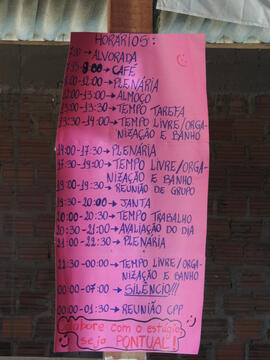 HORÁRIOS:
7:30 → ALVORADA
8:00 → CAFÉ
8:00-12:00 → PLENÁRIA
12:00-13:00 → ALMOÇO
13:00-13:30 → TEMPO TAREFA
13:30-14:00 → TEMPO LIVRE/ORGA-
NIZAÇÃO E BANHO
14:00-17:30 → PLENÁRIA
17:30-19:00 → TEMPO LIVRE/ORGA-
NIZAÇÃO E BANHO
19:00-19:30 → REUNIÃO DE GRUPO
19:30-20:00 → JANTA
20:00-20:30 → TEMPO TRABALHO
20:30-21:00 → AVALIAÇÃO DO DIA
21:00-22:30 → PLENÁRIA
22:30-00:00 → TEMPO LIVRE/ORGA-
NIZAÇÃO E BANHO
00:00-07:00 → SILÊNCIO!!!
00:00-01:30 → REUNIÃO CPP
Colabore com o estágio
seja PONTUAL!